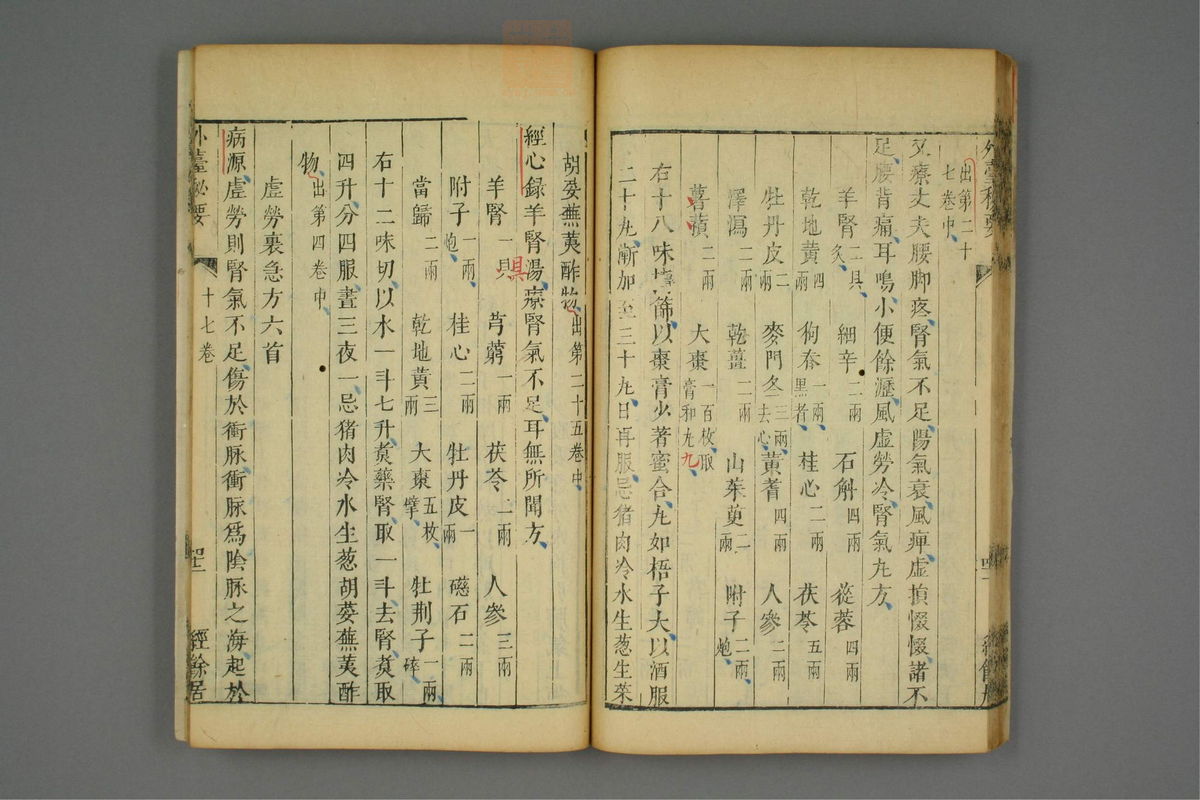 外臺秘要
出第二十
七卷中
又療丈夫腰脚疼腎氣不足陽氣衰風痺虛損惙惙諸不
足腰背痛耳鳴小便餘瀝風虛勞冷腎氣丸方
羊腎二具炙 細辛二兩 石斛四兩 蓯蓉四兩
乾地黃四兩 狗脊一兩黑者 桂心二兩 茯苓五兩
牡丹皮二兩 麥門冬三兩去心 黃耆四兩 人參二兩
澤瀉二兩 乾薑二兩 山茱萸二兩 附子二兩炮
薯蕷二兩 大棗一百枚取膏和丸丸
右十八味擣篩以棗膏少著蜜合丸如梧子大以酒服
二十丸漸加至三十丸日再服忌猪肉冷水生葱生菜
胡荽蕪荑酢物出第二十五卷中
經心録羊腎湯療腎氣不足耳無所聞方
羊腎一具具 芎藭一兩 茯苓二兩 人參三兩
附子一兩炮 桂心二兩 牡丹皮一兩 磁石二兩
當歸二兩 乾地黃三兩 大棗五枚擘 牡荆子一兩碎
右十二味切以水一斗七升煑藥腎取一斗去腎煑取
四升分四服晝三夜一忌猪肉冷水生葱胡荽蕪荑酢
物出第四卷中
虛勞裏急方六首
病源虛勞則腎氣不足傷於衝脉衝脉爲陰脉之海起於
外臺秘要 十七卷 四二 經餘居